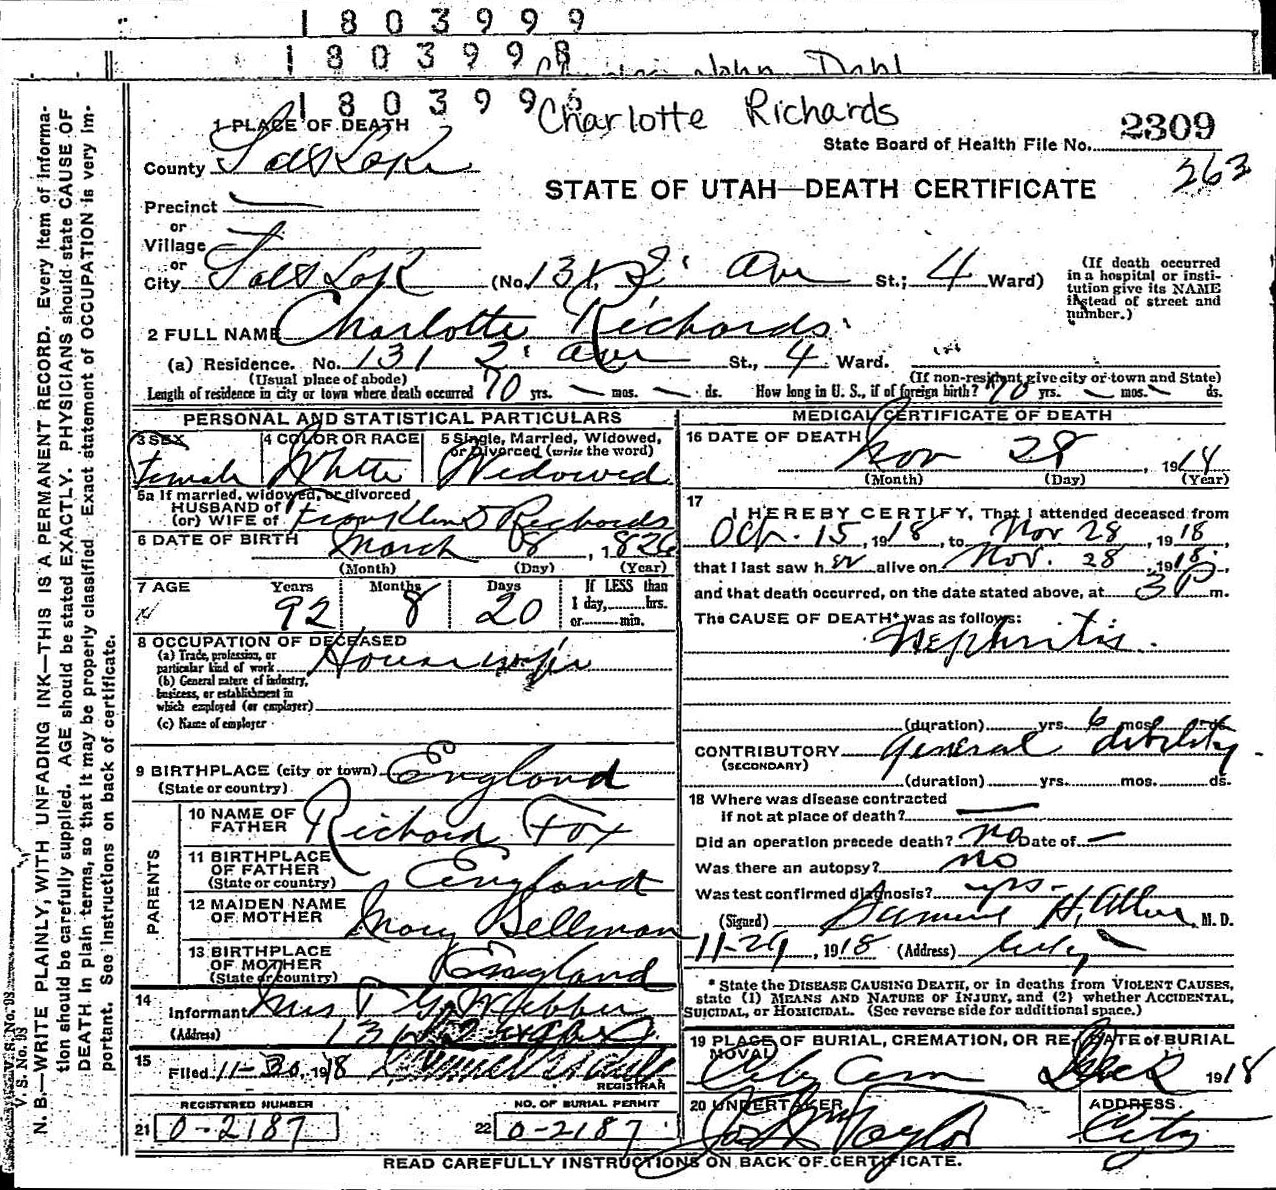 1803999
1803998
John Dahl
180399
Charlotte Richards
1 PLACE OF DEATH
2309
State Board of Health File No.
263
County Salt Lake
STATE OF UTAH—DEATH CERTIFICATE
Precinct
or
Village
or
City Salt Lake (No. 131, 2' Ave St.; 4 Ward)
(If death occurred in a hospital or institution give its NAME instead of street and number.)
2 FULL NAME Charlotte Richards
(a) Residence. No. 131 2' Ave St., 4 Ward.
(Usual place of abode) (If non-resident give city or town and State)
Length of residence in city or town where death occurred 70 yrs. — mos. — ds. How long in U. S., if of foreign birth? 70 yrs. — mos. — ds.
PERSONAL AND STATISTICAL PARTICULARS
3 SEX Female
4 COLOR OR RACE White
5 Single, Married, Widowed, or Divorced (write the word) Widowed
5a If married, widowed, or divorced
HUSBAND of
(or) WIFE of Franklin D Richards
6 DATE OF BIRTH March 08, 1826
(Month) (Day) (Year)
7 AGE Years 92 Months 8 Days 20 If LESS than 1 day, hrs. or min.
8 OCCUPATION OF DECEASED
(a) Trade, profession, or particular kind of work Housewife
(b) General nature of industry, business, or establishment in which employed (or employer)
(c) Name of employer
9 BIRTHPLACE (city or town) England
(State or country)
PARENTS
10 NAME OF FATHER Richard Fox
11 BIRTHPLACE OF FATHER England
(State or country)
12 MAIDEN NAME OF MOTHER Mary Sellman
13 BIRTHPLACE OF MOTHER England
(State or country)
14
Informant Mrs T G Webber
(Address)
15
Filed 11-30, 1918
REGISTRAR
REGISTERED NUMBER
21 0-2187
NO. OF BURIAL PERMIT
22 0-2187
MEDICAL CERTIFICATE OF DEATH
16 DATE OF DEATH
Nov 28, 1918
(Month) (Day) (Year)
17
I HEREBY CERTIFY, That I attended deceased from
Oct. 15, 1918, to Nov 28, 1918,
that I last saw her alive on Nov. 28, 1918,
and that death occurred, on the date stated above, at 3 P m.
The CAUSE OF DEATH* was as follows:
Nephritis.
(duration) yrs. 6 mos. ds.
CONTRIBUTORY General debility
(SECONDARY)
(duration) yrs. mos. ds.
18 Where was disease contracted
if not at place of death? —
Did an operation precede death? no Date of —
Was there an autopsy? no
Was test confirmed diagnosis? yes-
(Signed) Samuel H. Allen M. D.
11-29, 1918 (Address) City
* State the DISEASE CAUSING DEATH, or in deaths from VIOLENT CAUSES, state (1) MEANS AND NATURE OF INJURY, and (2) whether ACCIDENTAL, SUICIDAL, or HOMICIDAL. (See reverse side for additional space.)
19 PLACE OF BURIAL, CREMATION, OR REMOVAL DATE of BURIAL
City Cem Dec 2 1918
20 UNDERTAKER ADDRESS
Jos Wm Taylor City
READ CAREFULLY INSTRUCTIONS ON BACK OF CERTIFICATE.
V. S. No. 98
N. B.—WRITE PLAINLY, WITH UNFADING INK—THIS IS A PERMANENT RECORD. Every item of information should be carefully supplied. AGE should be stated EXACTLY. PHYSICIANS should state CAUSE OF DEATH in plain terms, so that it may be properly classified. Exact statement of OCCUPATION is very important. See instructions on back of certificate.